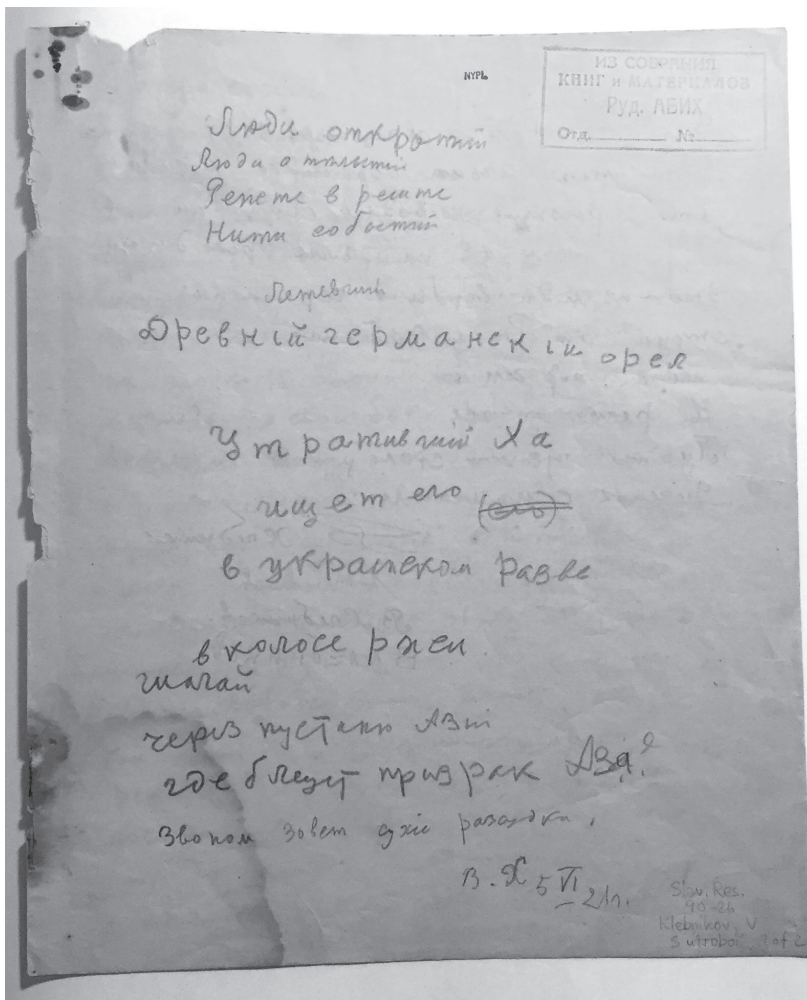 NYPL
ИЗ СОБРАНИЯ
КНИГ и МАТЕРИАЛОВ
Руд. АБИХ
Отд. №
Люди открытій
Люди отплытій
Репете в реште
Нити событій
Древній германскій орел
Утративший Ха
ищет его (его)
в украинском разве
в колосе ржи
шагай
через пустыню Азіи
где блещет призрак Аза?
Звоном зовет сухіе
В. Х 5 VI 21г.
Slav. Res.
90-26
Klebnikov, V
S utroboi 1 of 2